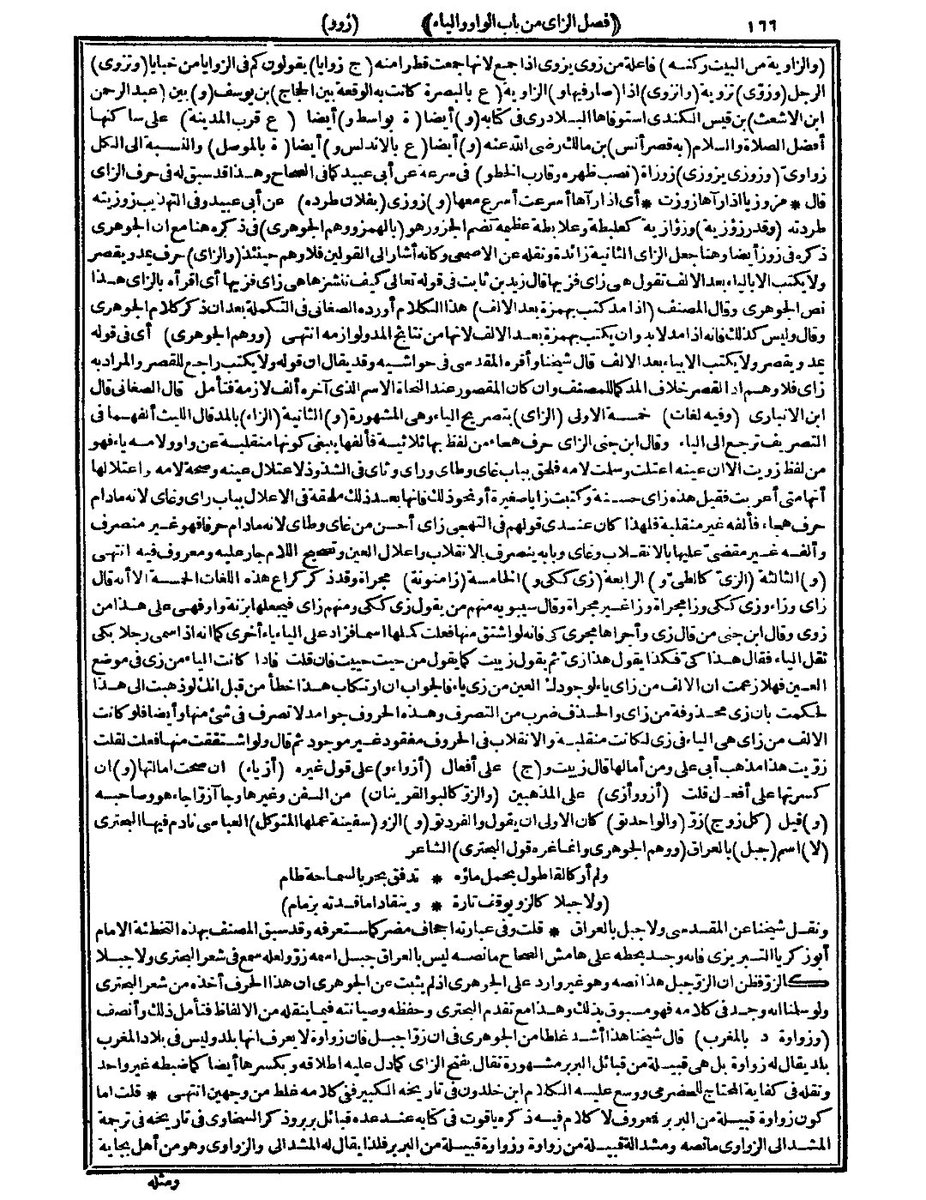 ١٦٦ ﴿فصل الزاى من باب الواو والياء﴾ (زور)
(والزاوية من البيت ركنه) فاعلة من زوى يزوى اذا جمع لانها جمعت قطرا منه (ج زوايا) يقولون كم فى الزوايا من خبايا (وتزوى)
الرجل (وزوّى) تزوية (وانزوى) اذا (صار فيها و) الزاوية (ع بالبصرة كانت به الوقعة بين الحجاج) بن يوسف (و) بين (عبد الرحمن
ابن الاشعث) بن قيس الكندى استوفاها البلاذرى فى كتابه (و) أيضا (ة بواسط و) أيضا (ع قرب المدينة) على ساكنها
أفضل الصلاة والسلام (به قصر أنس) بن مالك رضى الله عنه (و) أيضا (ع بالاندلس و) أيضا (ة بالموصل) والنسبة الى الكل
زواوىّ (وزوزى يزوزى) زوزاة (نصب ظهره وقارب الخطو) فى سرعة عن أبى عبيد كما فى الصحاح وهذا قد سبق له فى حرف الزاى
قال * مزوزيا اذا رآها زوزت * أى اذا رآها أسرعت أسرع معها (و) زوزى (بفلان طرده) عن أبى عبيد وفى التهذيب زوزيته
طردته (وقدر زؤزية) وزؤازية كعلبطة وعلابطة عظيمة تضم الجزور هو (بالهمز ووهم الجوهرى) فى ذكره هنا مع ان الجوهرى
ذكره فى زوز أيضا وهنا جعل الزاى الثانية زائدة ونقله عن الاصمعى وكانه أشار الى القولين فلا وهم حينئذ (والزاى) حرف يمد ويقصر
ولا يكتب الا بالياء بعد الالف تقول هى زاى فزيها قال زيد بن ثابت فى قوله تعالى كيف ننشزها هى زاى فزيها أى اقرأه بالزاى هذا
نص الجوهرى وقال المصنف (اذا مد كتب بهمزة بعد الالف) هذا الكلام أورده الصغانى فى التكملة بعد ان ذكر كلام الجوهرى
وقال وليس كذلك فانه اذا مد لا بد وان يكتب بهمزة بعد الالف لانها من نتائج المد ولوازمه انتهى (ووهم الجوهرى) أى فى قوله
يمد ويقصر ولا يكتب الا بياء بعد الالف قال شيخنا وأقره المقدسى فى حواشيه وقد يقال ان قوله ولا يكتب راجع للقصر والمراد به
زاى فلا وهم اذ القصر خلاف المد كما للمصنف وان كان المقصور عند النحاة الاسم الذى آخره ألف لازمة فتأمل قال الصغانى قال
ابن الانبارى (وفيه لغات) خمسة الاولى (الزاى) بتصريح الياء وهى المشهورة (و) الثانية (الزاء) بالمد قال الليث ألفهما فى
التصريف ترجع الى الياء وقال ابن جنى الزاى حرف هجاء من لفظ بها ثلاثية فألفها ينبغى كونها منقلبة عن واو ولامه ياء فهو
من لفظ زويت الا ان عينه اعتلت وسلمت لامه فلحق بباب غاى وطاى وراى وثاى فى الشذوذ لاعتلال عينه وصحة لامه واعتلالها
أنها متى أعربت فقيل هذه زاى حسنة وكتبت زايا صغيرة أو نحو ذلك فانها بعد ذلك ملحقة فى الاعلال بباب راى وغاى لانه مادام
حرف هجاء فألفه غير منقلبة فلهذا كان عندى قولهم فى التهجى زاى أحسن من غاى وطاى لانه مادام حرفا فهو غير متصرف
وألفه غير مقضىّ عليها بالانقلاب وغاى وبابه يتصرف بالانقلاب واعلال العين وتصحيح اللام جار عليه ومعروف فيه انتهى
(و) الثالثة (الزىّ كالطىّ و) الرابعة (زى ككى و) الخامسة (زا منونة) مجراة وقد ذكر كراع هذه اللغات الخمسة الا أنه قال
زاى وزاء وزى ككى وزا مجراة وزا غير مجراة وقال سيبويه منهم من يقول زى ككى ومنهم زاى فيجعلها بزنة واو فهى على هذا من
زوى وقال ابن جنى من قال زى وأجراها مجرى كى فانه لو اشتق منها فعلت كملها اسما فزاد على الياء ياء أخرى كما انه اذا سمى رجلا بكى
ثقل الياء فقال هذا كىّ فكذا يقول هذا زىّ ثم يقول زييت كما يقول من حيت حييت فان قلت فاذا كانت الياء من زى فى موضع
العين فهلا زعمت ان الالف من زاى ياء لوجودك العين من زى ياء فالجواب ان ارتكاب هذا خطأ من قبل انك لو ذهبت الى هذا
لحكمت بان زى محذوفة من زاى والحذف ضرب من التصرف وهذه الحروف جوامد لا تصرف فى شئ منها وأيضا فلو كانت
الالف من زاى هى الياء فى زى لكانت منقلبة والانقلاب فى الحروف مفقود غير موجود ثم قال ولو اشتققت منها فعلت لقلت
زوّيت هذا مذهب أبى على ومن أمالها قال زييت و (ج) على أفعال (أزواء و) على قول غيره (أزياء) ان صحت امالتها (و) ان
كسرتها على أفعل قلت (أزوٍ وأزىٍ) على المذهبين (والزوّ كالبوّ القرينان) من السفن وغيرها وجاآ زوّا جاء هو وصاحبه
(و) قيل (كل زوج) زوّ (والواحد توّ) كان الاولى ان يقول والفرد توّ (و) الزو (سفينة عملها المتوكل) العباسى نادم فيها البحترى
(لا) اسم (جبل) بالعراق (ووهم الجوهرى وانما غره قول البحترى) الشاعر
ولم أر كالقاطول يحمل ماؤه * تدفق بحر بالسماحة طام
(ولا جبلا كالزو يوقف تارة * وينقاد اما قدته بزمام)
ونقل شيخنا عن المقدسى ولا جبل بالعراق * قلت وفى عبارته اجحاف مضر كما ستعرفه وقد سبق المصنف بهذه التخطئة الامام
أبو زكريا التبريزى فانه وجد بخطه على هامش الصحاح ما نصه ليس بالعراق جبل اسمه زوّ ولعله سمع فى شعر البحترى ولا جبلا
كالزوّ فظن ان الزوّ جبل هذا نصه وهو غير وارد على الجوهرى اذ لم يثبت عن الجوهرى ان هذا الحرف أخذه من شعر البحترى
ولو سلمنا انه وجد فى كلامه فهو مسبوق بذلك وهذا مع تقدم البحترى وحفظه وصيانته فيما ينقله من الالفاظ فتأمل ذلك وأنصف
(وزواوة د بالمغرب) قال شيخنا هذا أشد غلطا من الجوهرى فى ان زوّ اجبل فان زواوة لا يعرف انها بلد وليس فى بلاد المغرب
بلد يقال له زواوة بل هى قبيلة من قبائل البربر مشهورة تقال بفتح الزاى كما دل عليه اطلاقه وبكسرها أيضا كما ضبطه غير واحد
ونقله فى كفاية المحتاج للعضرمى ووسع عليه الكلام ابن خلدون فى تاريخه الكبير ففى كلامه غلط من وجهين انتهى * قلت اما
كون زواوة قبيلة من البربر فمعروف لا كلام فيه ذكره ياقوت فى كتابه عند عده قبائل بربر وذكر السخاوى فى تاريخه فى ترجمة
المشدالى الزواوى ما نصه ومشدالة قبيلة من زواوة وزواوة قبيلة من البربر فلذا يقال له المشدالى والزواوى وهو من أهل بجاية
ومثله